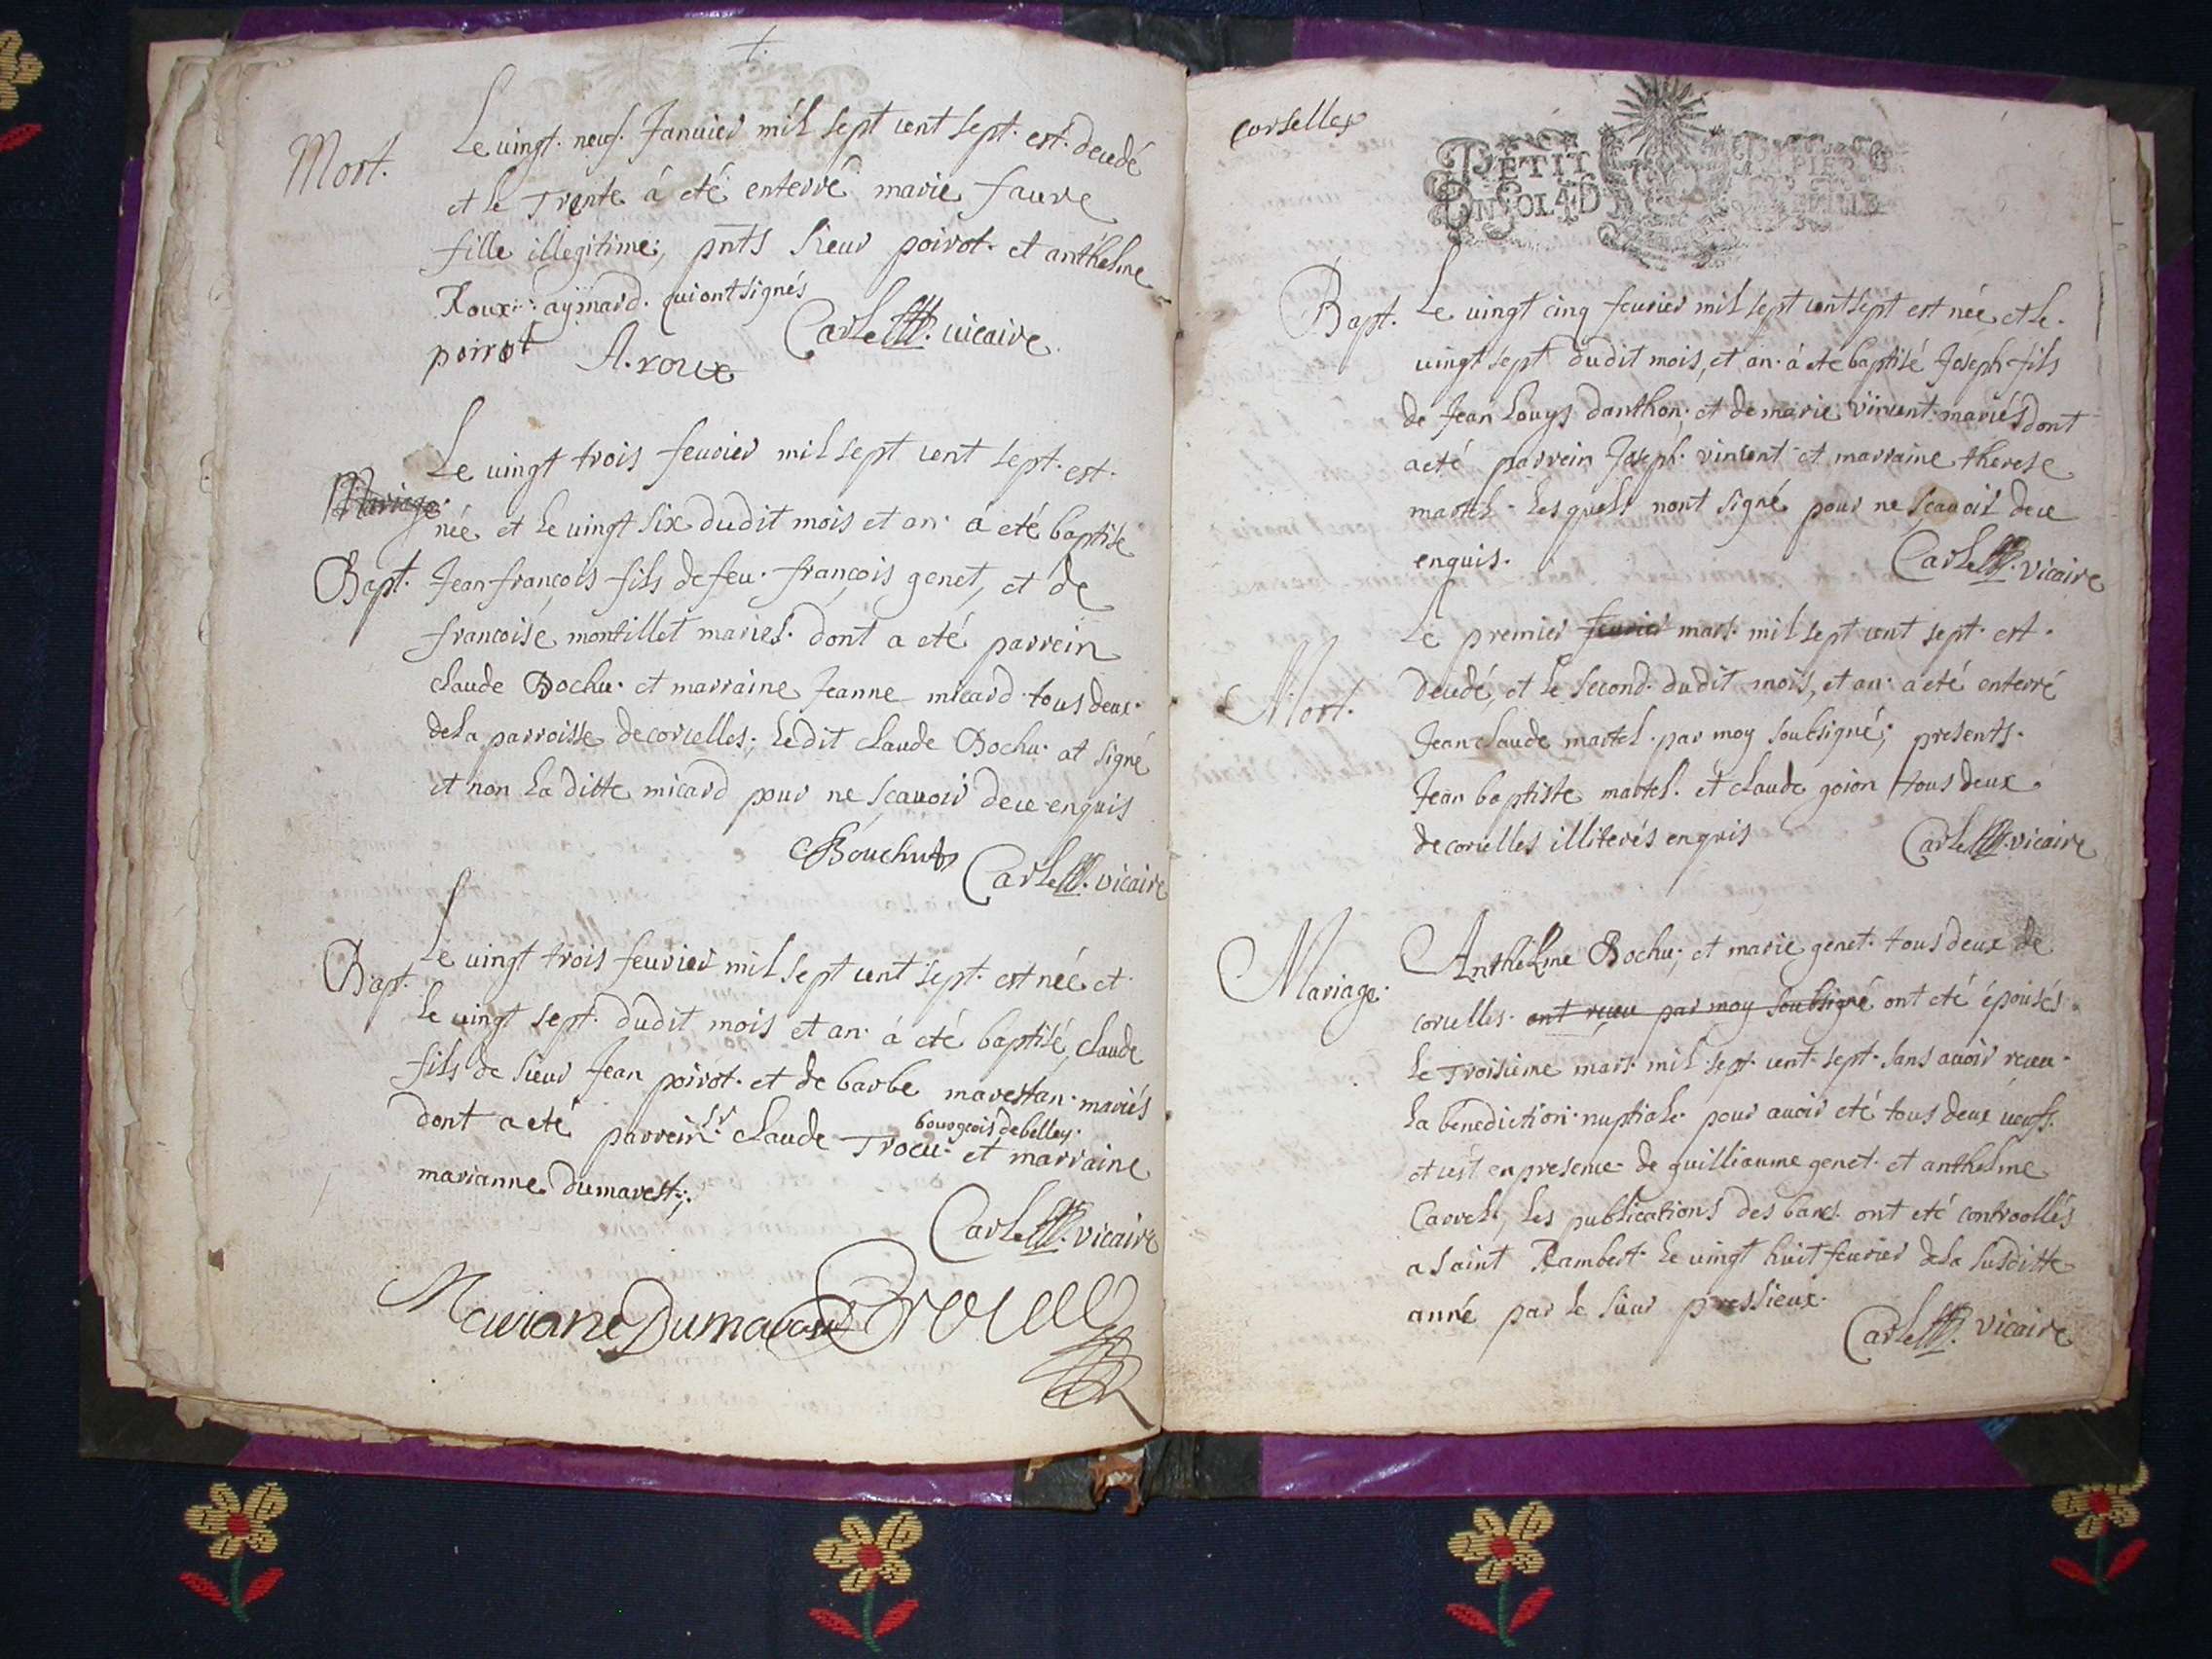 Mort.
Le vingt. neuf. Januier mil sept cent sept. est. decedé
et le Trente á eté enterré marie faure
fille illegitime; pnts sieur poirot. et anthelme
Roux aymard. qui ont signés
poirrot A. roux Carle vicaire.
Le vingt trois feurier mil sept cent sept. est.
Mariage
née et le vingt six dudit mois et an á eté baptisé
Bapt. Jean françois fils de feu. françois genet, et de
francoise montillet mariés. dont a eté parrein
claude Bochu. et marraine Jeanne micard tous deux.
de la parroisse de corcelles; ledit claude Bochu. at signé
et non la ditte micard pour ne sçauoir de ce enquis
C Bouchu Carle vicaire
Bapt. Le vingt trois feurier mil sept cent sept. est née et
le vingt sept. dudit mois et an á eté baptisé, claude
fils de sieur Jean poirot. et de barbe marestan. mariés
bourgeois de belley.
dont a eté parrein sr. claude Trocu. et marraine
marianne dumarest;
Carle vicaire
Mariane Dumarest Trocu
corselles
PETIT PAPIER
UN SOL 4D
Bapt. Le vingt cinq feurier mil sept cent sept est née et le.
vingt sept dudit mois, et an. á eté baptisé Joseph fils
de Jean Louys danthon; et de marie vincent mariés dont
a eté parrein Joseph vincent et marraine therese
martel. lesquels nont signé pour ne sçauoir de ce
enquis. Carle vicaire
Le premier feurier mars. mil sept cent sept. est.
Mort.
decedé, et le second. dudit mois, et an. a eté enterré
Jean claude martel. par moy soubsigné; presents.
Jean baptiste martel. et claude goion tous deux
de corcelles illiterés enquis Carle vicaire
Mariage. Anthelme Bochu; et marie genet. tous deux de
corcelles. ont reçeu par moy soubsigné ont eté épousés
le Troisieme mars. mil sept cent sept. sans auoir receu
la benediction nuptiale. pour auoir eté tous deux veufs.
et cest en presence de guilliaume genet. et anthelme
Carrel; les publications des bancs. ont eté controollés
a saint Rambert. le vingt huit feurier de la susditte
anné par le sieur pressieux.
Carle vicaire